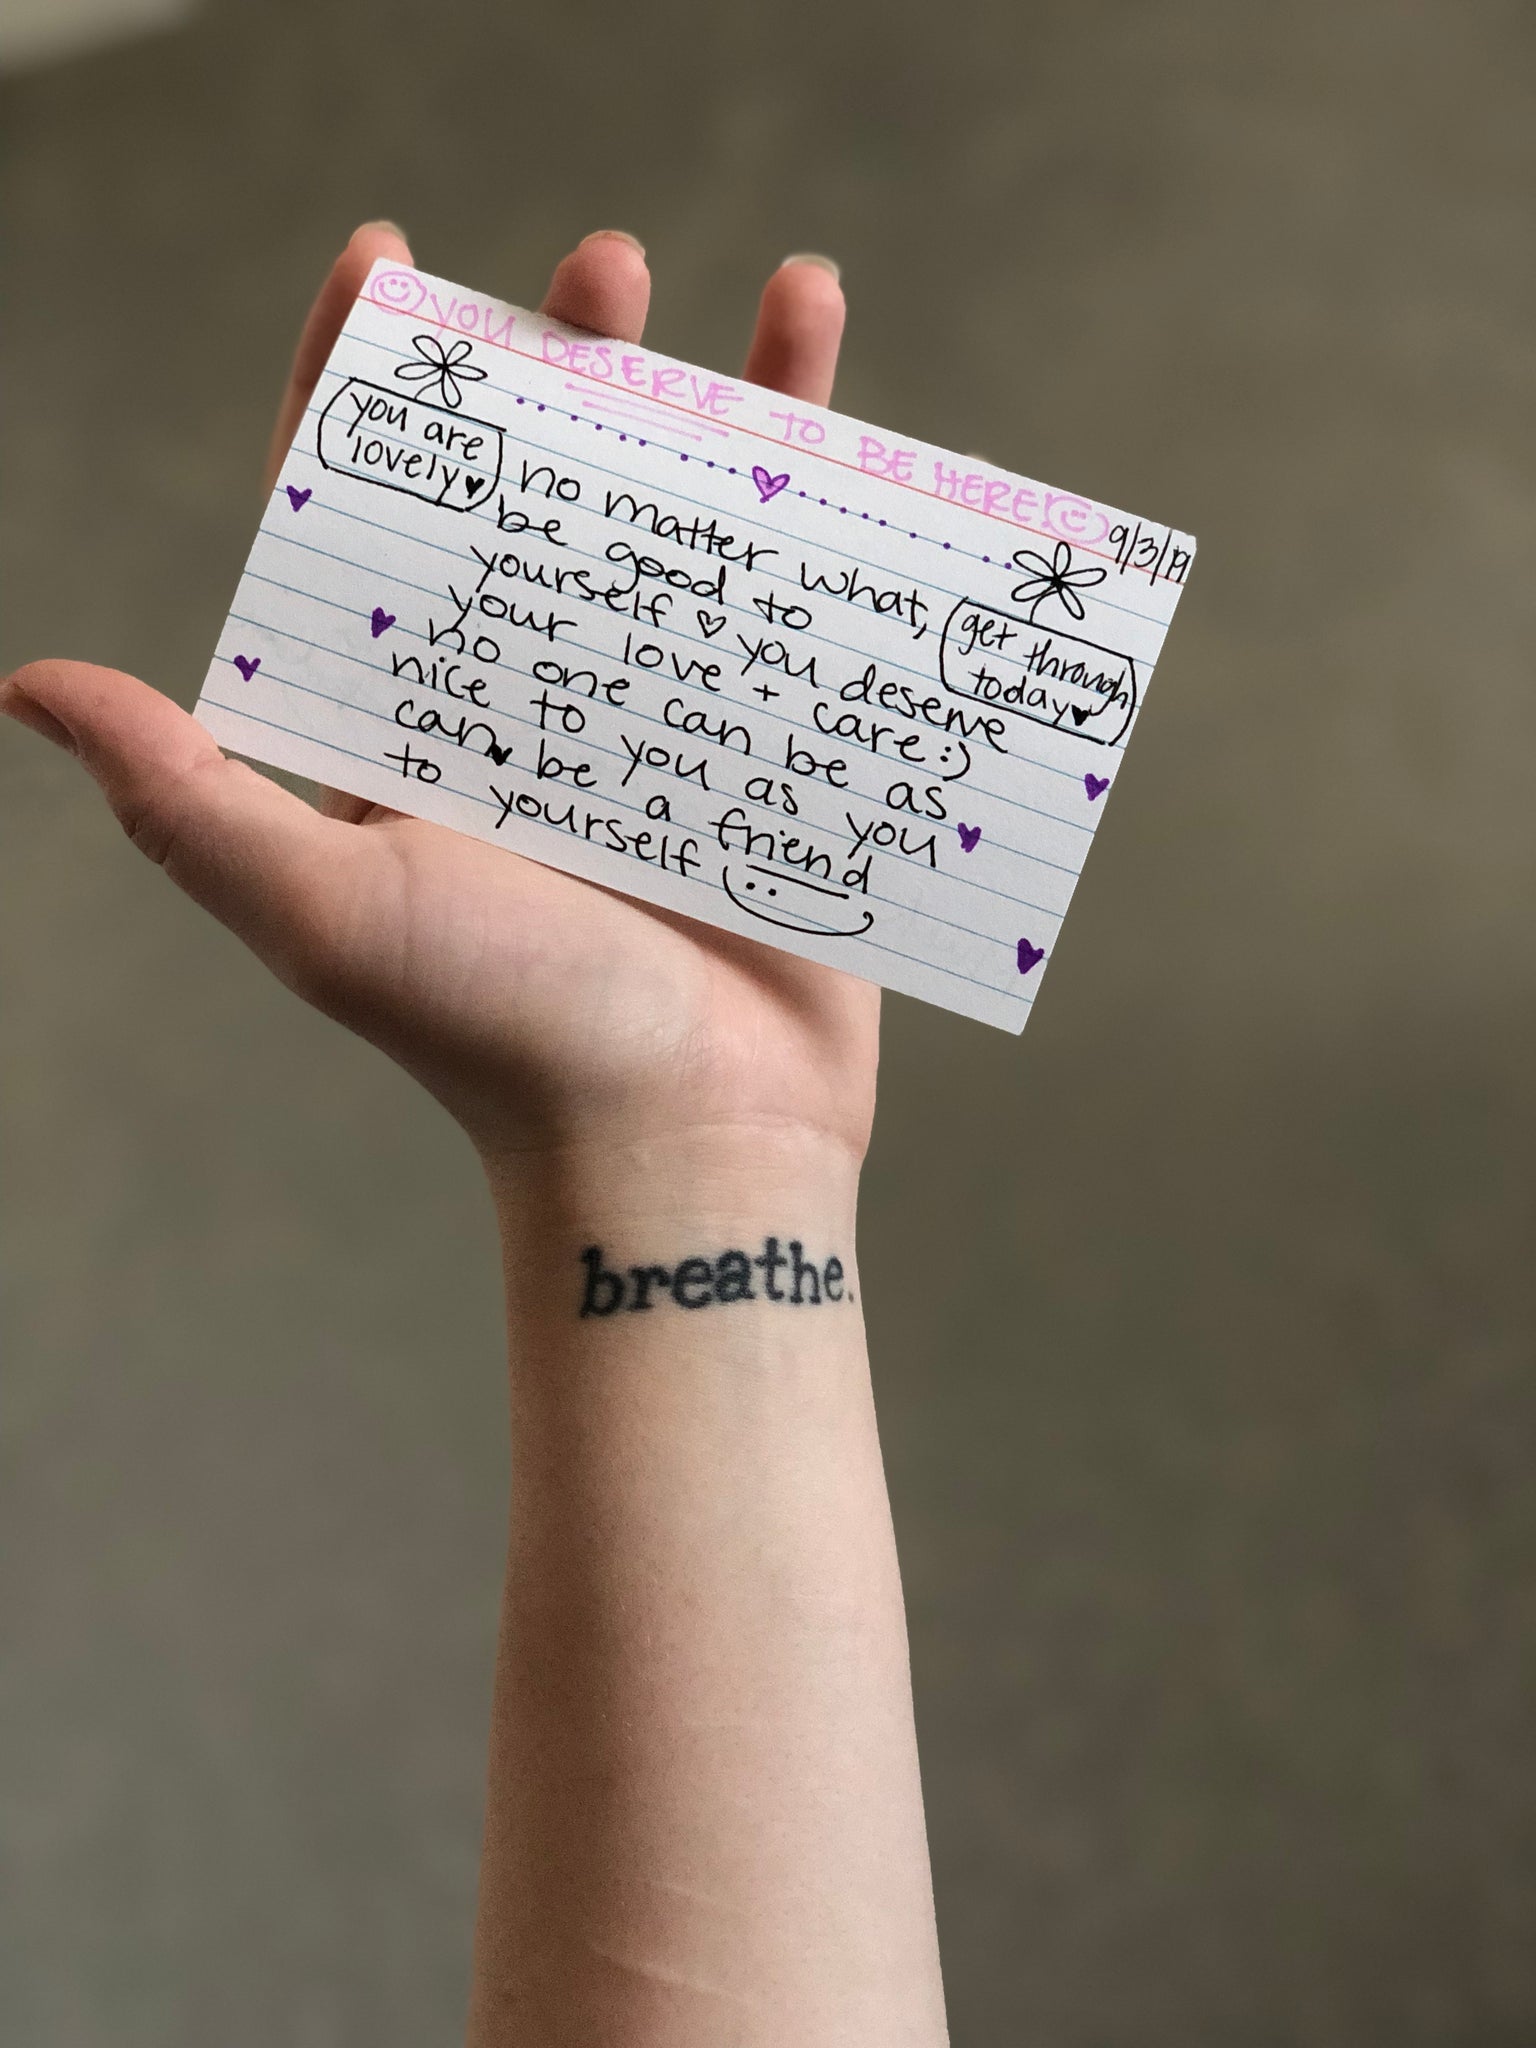 YOU DESERVE TO BE HERE!
9/3/19
you are
lovely
get through
today
no matter what,
be good to
yourself ♡ you deserve
your love + care :)
no one can be as
nice to you as you
can be a friend
to yourself
breathe.